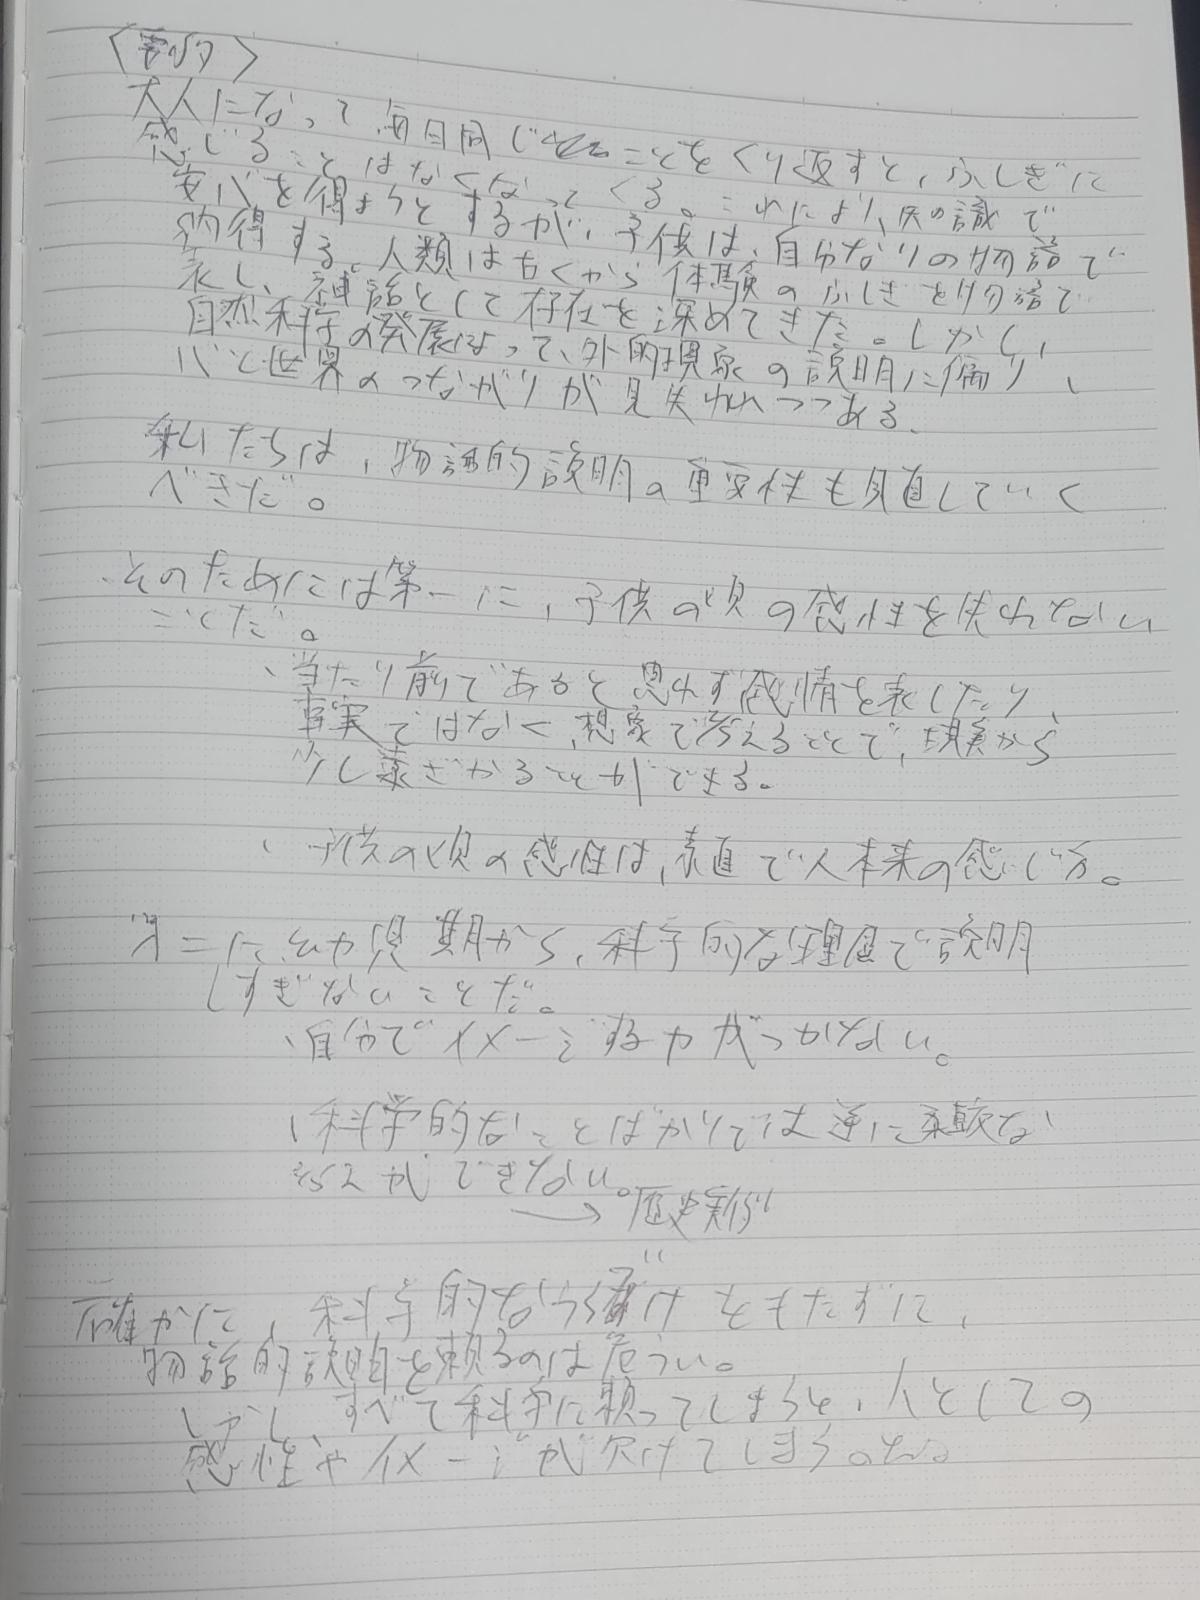 <要約>
大人になって毎日同じことをくり返すと、ふしぎに
感じることはなくなってくる。これにより、知識で
安心を得ようとするが、子供は、自分なりの物語で
納得する。人類は古くから体験のふしぎを物語で
表し、神話として存在を深めてきた。しかし、
自然科学の発展によって、外的現象の説明に偏り、
心と世界のつながりが見失われつつある。
私たちは、物語的説明の重要性も見直していく
べきだ。
・そのためには第一に、子供の頃の感性を失れない
ことだ。
・当たり前であると思わず感情を表したり、
事実ではなく、想像で考えることで、現実から
少し遠ざかることができる。
・子供の頃の感性は、素直で人本来の感じ方。
第二に幼児期から、科学的な理屈で説明
しすぎないことだ。
・自分でイメージする力がつかない。
・科学的なことばかりでは逆に柔軟な
考えができない。
→歴史実例
確かに、科学的なうらづけをもたずに、
物語的説明を頼るのは危うい。
しかし、すべて科学に頼ってしまうと、人としての
感性やイメージが欠けてしまう。